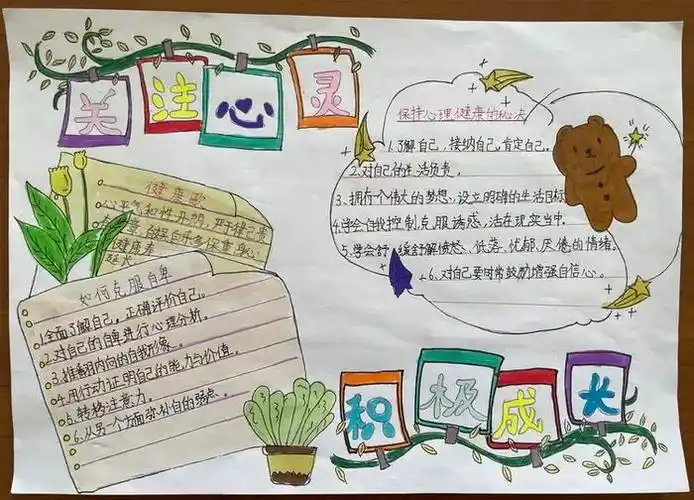 关注心灵
保持心理健康的秘决
1.了解自己，接纳自己，肯定自己。
2.对自己的生活负责。
3.拥有个伟大的梦想、设立明确的生活目标
4.学会自我控制克服诱惑，活在现实当中.
5.学会舒 缓舒解愤怒、低落、忧郁、厌倦的情绪.
6.对自己要时常鼓励增强自信心。
健康歌
心平气和性开朗，
健康者
如何克服自卑
1.全面了解自己，正确评价自己。
2.对自己的自卑进行心理分析。
3.推翻内向的自我形象。
4.用行动证明自己的能力与价值。
5.转移注意力。
6.从另一个方面弥补自的弱点。
积极成长